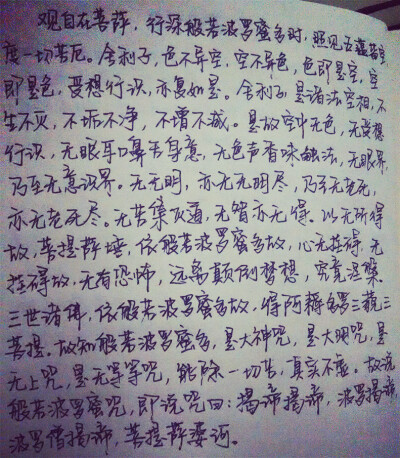 观自在菩萨，行深般若波罗蜜多时，照见五蕴皆空
度一切苦厄。舍利子，色不异空，空不异色，色即是空，空
即是色，受想行识，亦复如是。舍利子，是诸法空相，不
生不灭，不垢不净，不增不减。是故空中无色，无受想
行识，无眼耳鼻舌身意，无色声香味触法，无眼界，
乃至无意识界。无无明，亦无无明尽，乃至无老死，
亦无老死尽。无苦集灭道，无智亦无得。以无所得
故，菩提萨埵，依般若波罗蜜多故，心无挂碍，无
挂碍故，无有恐怖，远离颠倒梦想，究竟涅槃。
三世诸佛，依般若波罗蜜多故，得阿耨多罗三藐三
菩提。故知般若波罗蜜多，是大神咒，是大明咒，是
无上咒，是无等等咒，能除一切苦，真实不虚。故说
般若波罗蜜咒，即说咒曰：揭谛揭谛，波罗揭谛，
波罗僧揭谛，菩提萨婆诃。